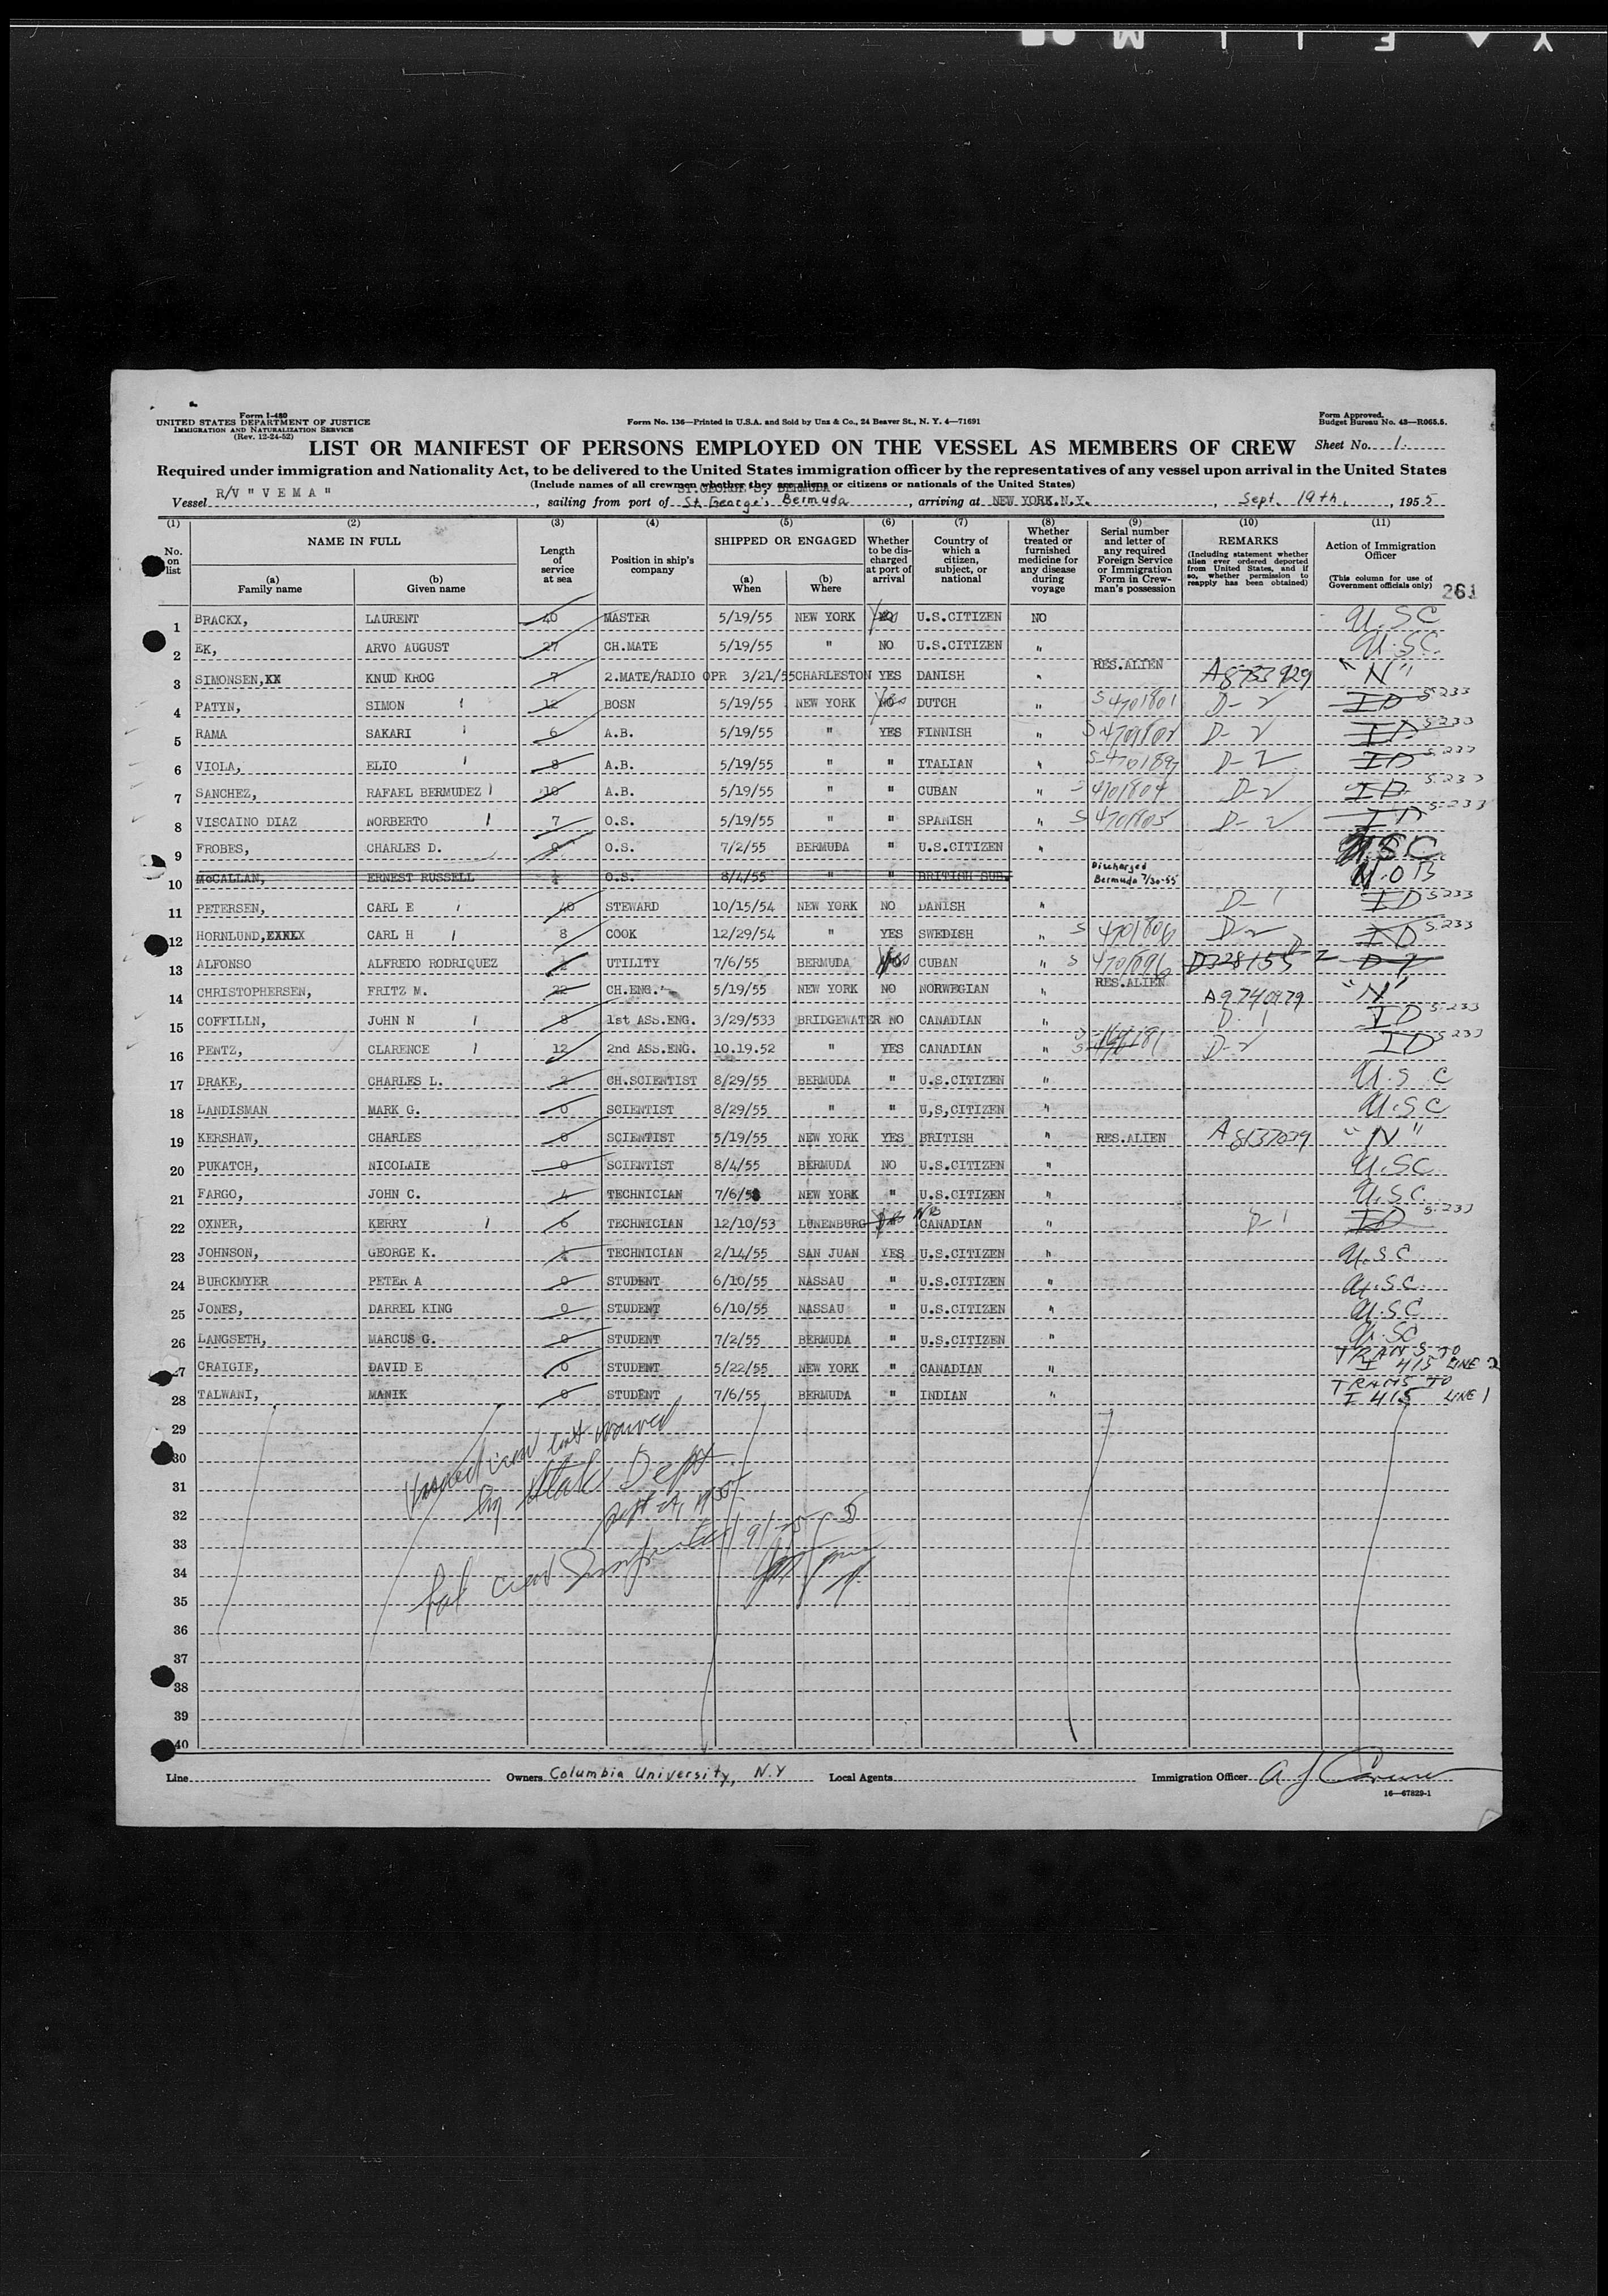 Y A F I L M
Form I-489
UNITED STATES DEPARTMENT OF JUSTICE
IMMIGRATION AND NATURALIZATION SERVICE
(Rev. 12-24-52)
Form No. 136—Printed in U.S.A. and Sold by Unz & Co., 24 Beaver St., N. Y. 4—71691
Form Approved.
Budget Bureau No. 43—R065.5.
LIST OR MANIFEST OF PERSONS EMPLOYED ON THE VESSEL AS MEMBERS OF CREW Sheet No. 1.
Required under immigration and Nationality Act, to be delivered to the United States immigration officer by the representatives of any vessel upon arrival in the United States
(Include names of all crewmen whether they are aliens or citizens or nationals of the United States)
ST.GEORGE'S, BERMUDA
Vessel R/V "VEMA", sailing from port of St. George's Bermuda, arriving at NEW YORK.N.Y., Sept. 19th, 1955
(1) (2) (3) (4) (5) (6) (7) (8) (9) (10) (11)
No. on list NAME IN FULL (a) Family name (b) Given name Length of service at sea Position in ship's company SHIPPED OR ENGAGED (a) When (b) Where Whether to be discharged at port of arrival Country of which a citizen, subject, or national Whether treated or furnished medicine for any disease during voyage Serial number and letter of any required Foreign Service or Immigration Form in Crewman's possession REMARKS (Including statement whether alien ever ordered deported from United States, and if so, whether permission to reapply has been obtained) Action of Immigration Officer (This column for use of Government officials only)
261
1 BRACKX, LAURENT 40 MASTER 5/19/55 NEW YORK Yes U.S.CITIZEN NO U.S.C
2 EK, ARVO AUGUST 27 CH.MATE 5/19/55 " NO U.S.CITIZEN " U.S.C.
3 SIMONSEN,XX KNUD KROG 7 2.MATE/RADIO OPR 3/21/55 CHARLESTON YES DANISH " RES.ALIEN A8733929 "N"
4 PATYN, SIMON 12 BOSN 5/19/55 NEW YORK NO Yes DUTCH " S 4701801 D-2 ID 5-233
5 RAMA SAKARI 6 A.B. 5/19/55 " YES FINNISH " D-2 ID 5-233
6 VIOLA, ELIO 8 A.B. 5/19/55 " " ITALIAN " D-2 ID 5-233
7 SANCHEZ, RAFAEL BERMUDEZ 10 A.B. 5/19/55 " " CUBAN " 4701804 D-2 ID 5-233
8 VISCAINO DIAZ NORBERTO 7 O.S. 5/19/55 " " SPANISH " S 4701805 D-2 ID 5-233
9 FROBES, CHARLES D. O.S. 7/2/55 BERMUDA " U.S.CITIZEN " U.S.C
10 McCALLAN, ERNEST RUSSELL O.S. 8/4/55 " " BRITISH SUB. Discharged Bermuda 7/30-55 N.O.B
11 PETERSEN, CARL E 40 STEWARD 10/15/54 NEW YORK NO DANISH " D-1 ID 5-233
12 HORNLUND, CARL H 8 COOK 12/29/54 " YES SWEDISH " S 4701806 D-2 ID 5-233
13 ALFONSO ALFREDO RODRIQUEZ UTILITY 7/6/55 BERMUDA Yes CUBAN " S
14 CHRISTOPHERSEN, FRITZ M. 22 CH.ENG. 5/19/55 NEW YORK NO NORWEGIAN " RES.ALIEN A9740979 "N"
15 COFFILLN, JOHN N 8 1st ASS.ENG. 3/29/533 BRIDGEWATER NO CANADIAN " D-1 ID 5-233
16 PENTZ, CLARENCE 12 2nd ASS.ENG. 10.19.52 " YES CANADIAN " D-2 ID 5-233
17 DRAKE, CHARLES L. 2 CH.SCIENTIST 8/29/55 BERMUDA " U.S.CITIZEN " U.S C
18 LANDISMAN MARK G. 0 SCIENTIST 8/29/55 " " U,S,CITIZEN " U.S C
19 KERSHAW, CHARLES 0 SCIENTIST 5/19/55 NEW YORK YES BRITISH " RES.ALIEN A 8137029 "N"
20 PUKATCH, NICOLAIE 0 SCIENTIST 8/4/55 BERMUDA NO U.S.CITIZEN " U.S.C
21 FARGO, JOHN C. 4 TECHNICIAN 7/6/53 NEW YORK " U.S.CITIZEN " U.S.C.
22 OXNER, KERRY 6 TECHNICIAN 12/10/53 LUNENBURG No CANADIAN " D-1 ID 5-233
23 JOHNSON, GEORGE K. TECHNICIAN 2/14/55 SAN JUAN YES U.S.CITIZEN " U.S.C
24 BURCKMYER PETER A 0 STUDENT 6/10/55 NASSAU " U.S.CITIZEN " U.S.C.
25 JONES, DARREL KING 0 STUDENT 6/10/55 NASSAU " U.S.CITIZEN " U.S.C
26 LANGSETH, MARCUS G. 0 STUDENT 7/2/55 BERMUDA " U.S.CITIZEN " U.S.C
27 CRAIGIE, DAVID E 0 STUDENT 5/22/55 NEW YORK " CANADIAN " TRANS TO I 415 LINE 2
28 TALWANI, MANIK 0 STUDENT 7/6/55 BERMUDA " INDIAN " TRANS TO I 415 LINE 1
29
30
31
32
33
34
35
36
37
38
39
40
Visaed crew list waived
by State Dept
Sept 21, 1955
Line Owners Columbia University, N.Y Local Agents Immigration Officer
16—67829-1